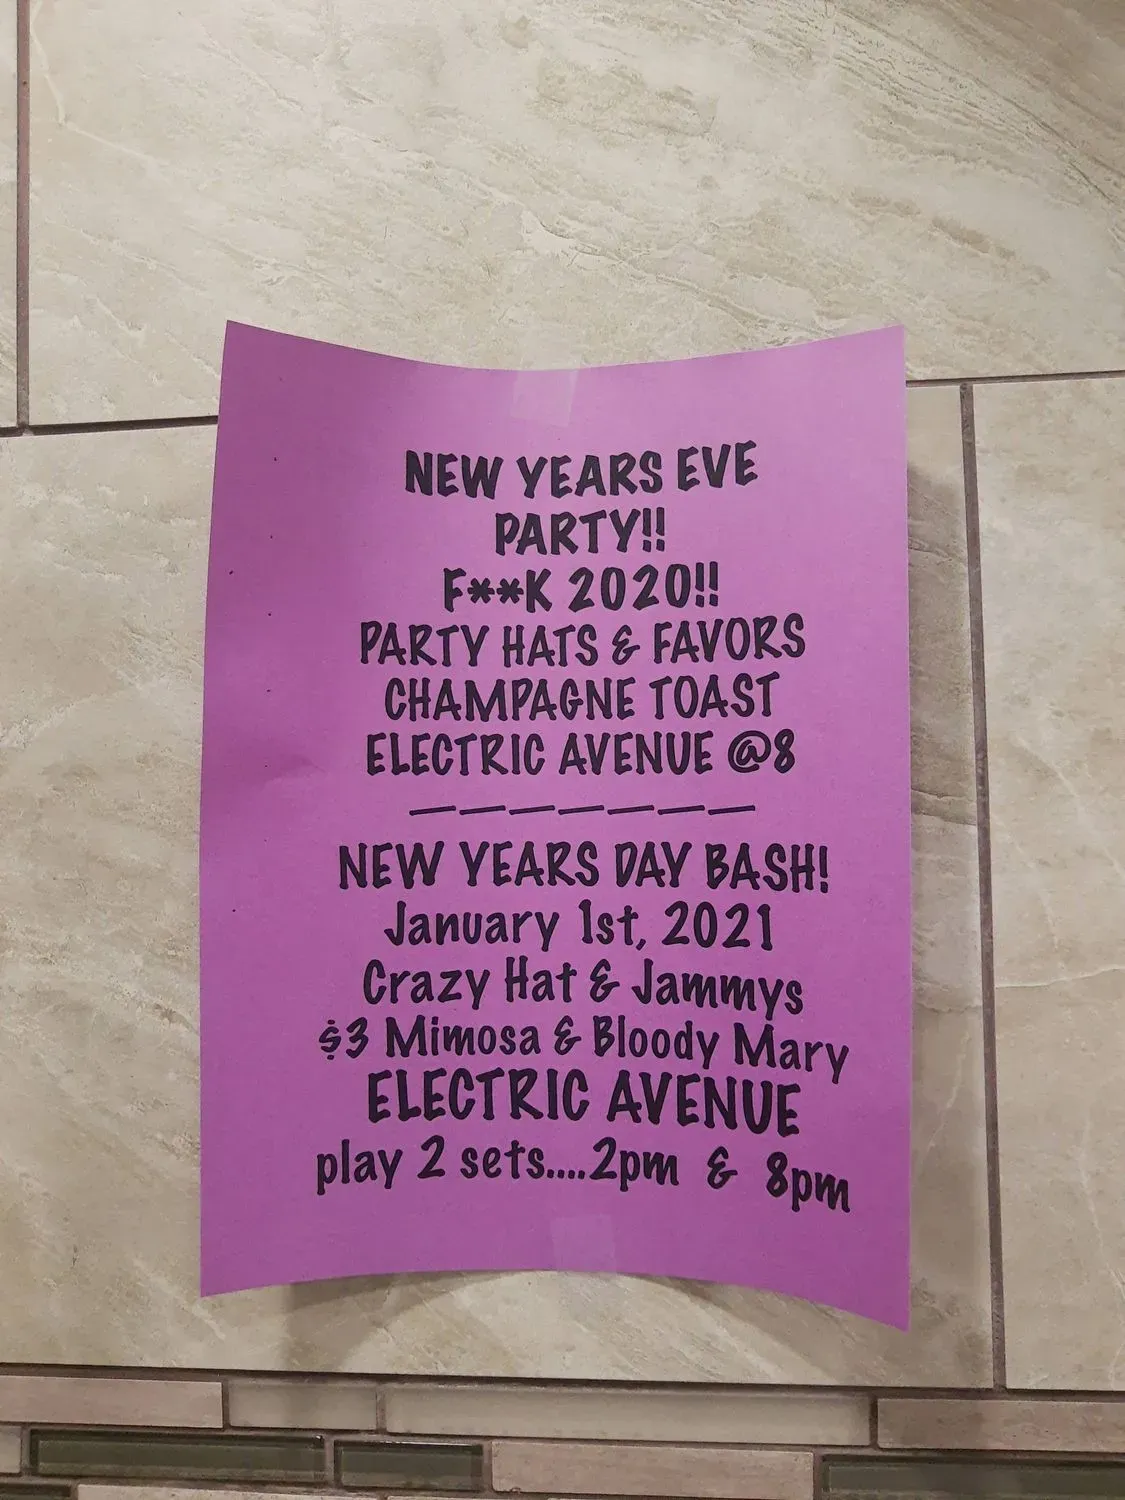 NEW YEARS EVE
PARTY!!
F**K 2020!!
PARTY HATS & FAVORS
CHAMPAGNE TOAST
ELECTRIC AVENUE @8
———————
NEW YEARS DAY BASH!
January 1st, 2021
Crazy Hat & Jammys
$3 Mimosa & Bloody Mary
ELECTRIC AVENUE
play 2 sets....2pm & 8pm